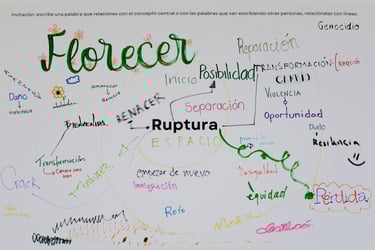 Invitación: escribe una palabra que relaciones con el concepto central o con las palabras que van escribiendo otras personas, relaciónalas con líneas.
Genocidio
Florecer
Reparación
Inicio
Posibilidad
TRANSFORMACIÓN
Daño
Separación
VIOLENCIA
Oportunidad
RENACER
Ruptura
Duelo
Resiliencia
ESPACIO
Transformación
empezar de nuevo
Desigualdad
Crack
Inmigración
equidad
Pérdida
Roto